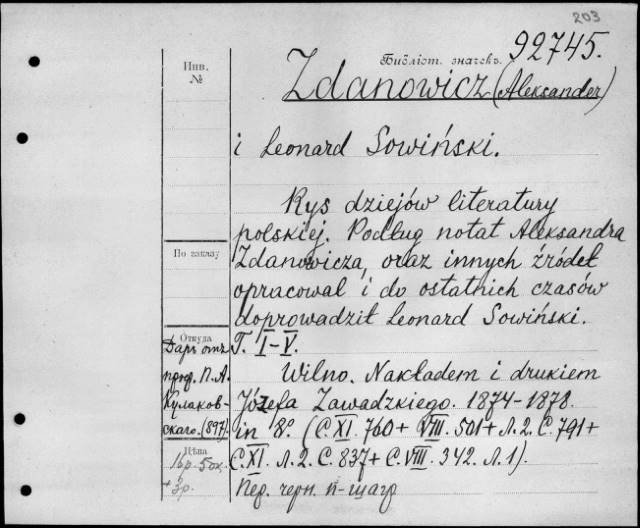 203
Инв.
№
Библіот. значекъ. 92745.
Zdanowicz (Aleksander)
i Leonard Sowiński.
Rys dziejów literatury
polskiej. Podług notat Aleksandra
Zdanowicza, oraz innych źródeł
opracował i do ostatnich czasów
doprowadził Leonard Sowiński.
T. I–V.
Wilno. Nakładem i drukiem
Józefa Zawadzkiego. 1874–1878.
in 8º. (C. XI. 760 + VIII. 501 + Л. 2. C. 791 +
C. XI. Л. 2. C. 837 + C. VIII. 342. Л. 1).
Пер. черн. п-
По заказу
Откуда
Даръ отъ
проф. П. А.
Кулаков-
скаго. (897)
Цѣна
1 р. 50 к.
+ 3 р.